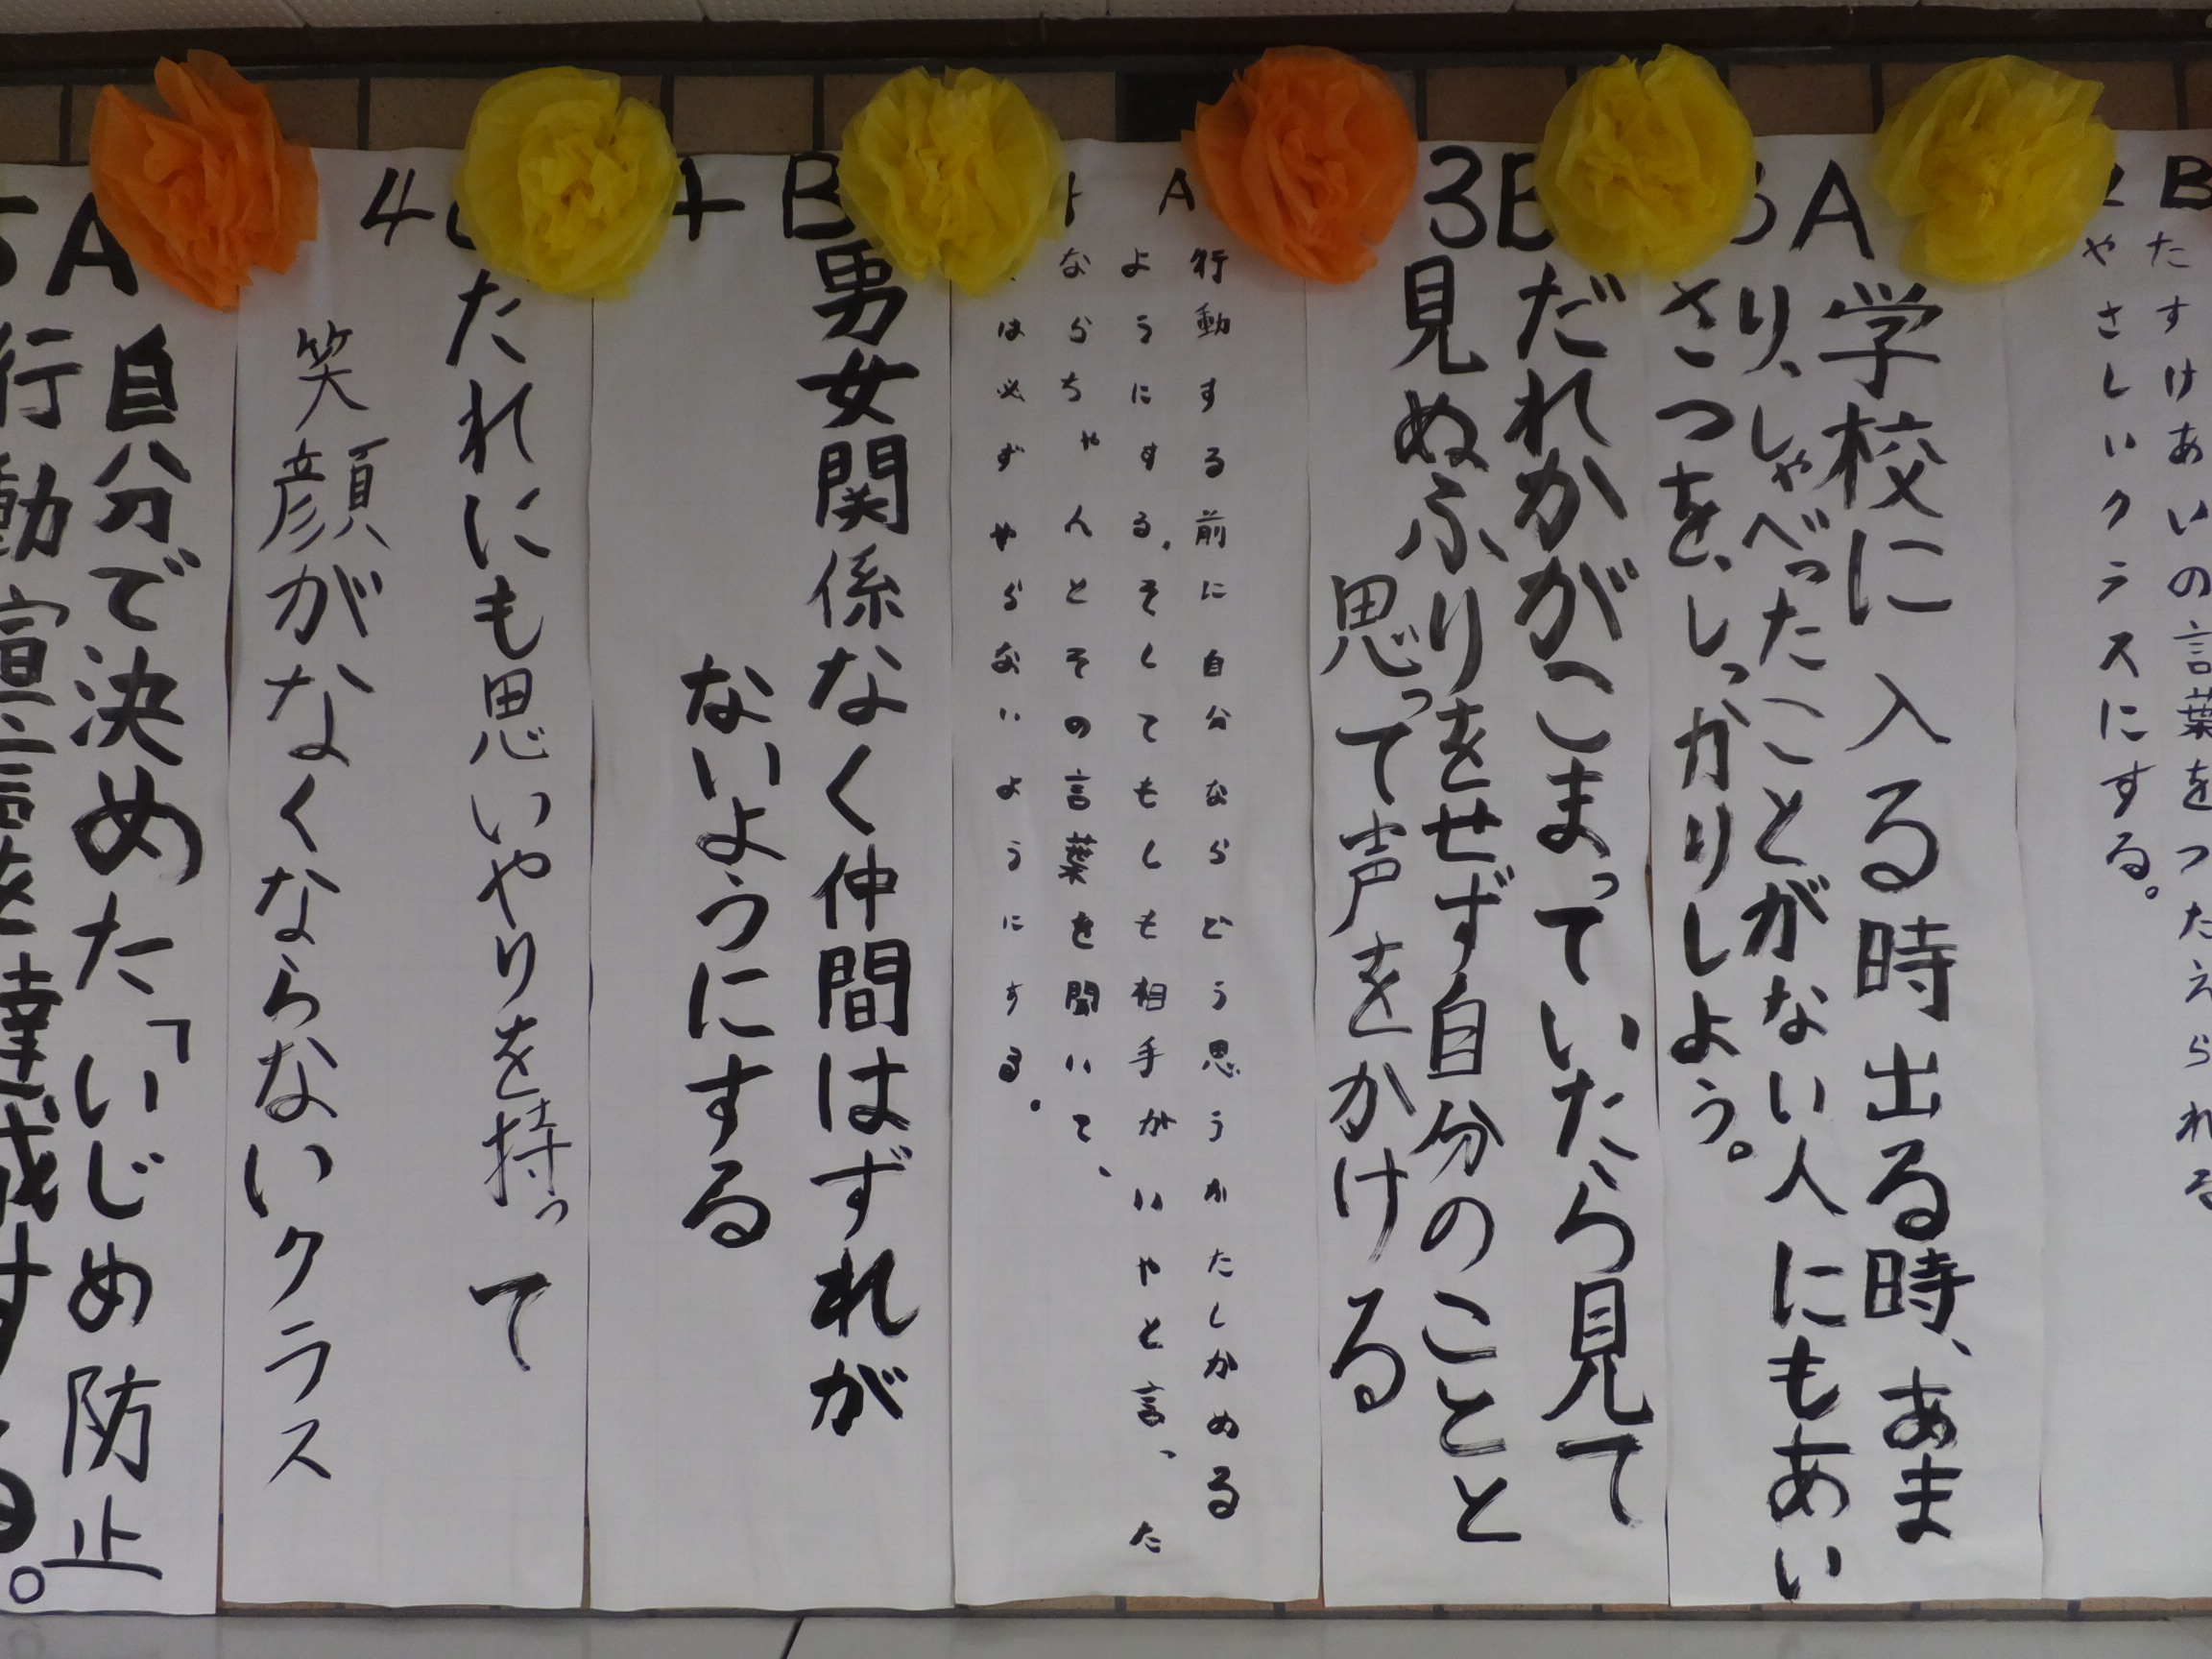 2B
たすけあいの言葉をつたえられる
やさしいクラスにする。
3A
学校に入る時出る時、あま
り、しゃべったことがない人にもあい
さつを、しっかりしよう。
3B
だれかがこまっていたら見て
見ぬふりをせず自分のことと
思って声をかける
A
行動する前に自分ならどう思うかたしかめる
ようにする。そしてもしも相手がいやと言った
ならちゃんとその言葉を聞いて、
は必ずやらないようにする。
4B
男女関係なく仲間はずれが
ないようにする
4
たれにも思いやりを持って
笑顔がなくならないクラス
5A
自分で決めた「いじめ防止
行動宣言を達成する。